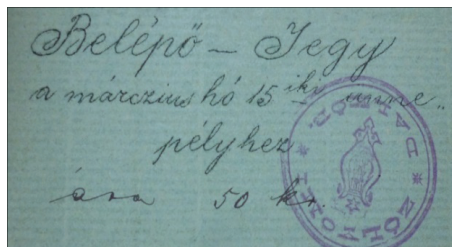 Belépő – Jegy
a márczius hó 15 iki ünne„
pélyhez
ára 50 kr.